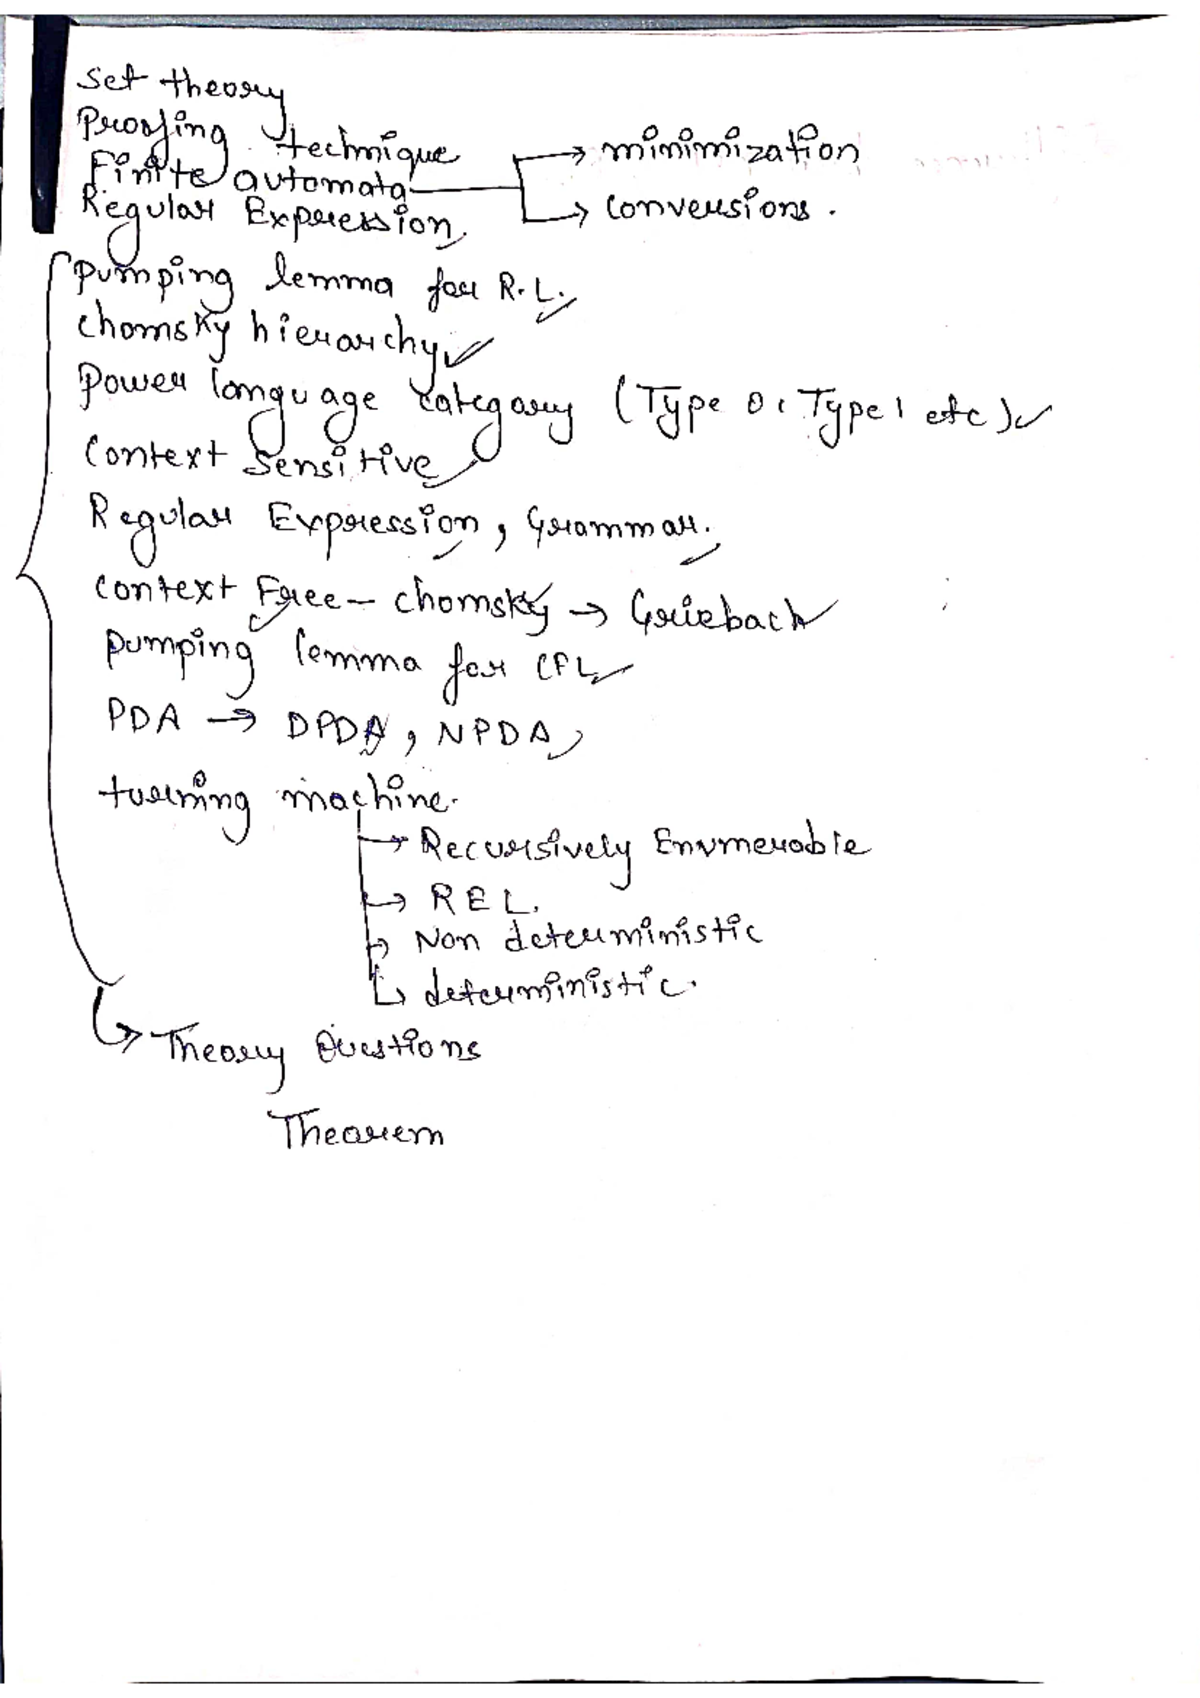 Set theory
Proofing technique
Finite automata → minimization
→ Conversions.
Regular Expression
Pumping lemma for R.L.
Chomsky hierarchy
Power language category (Type 0, Type 1 etc)
Context Sensitive
Regular Expression, Grammar.
Context Free - chomsky → Grieback
Pumping lemma for CFL
PDA → DPDA, NPDA
turining machine.
→ Recursively Enumerable
→ REL.
→ Non deterministic
→ deterministic.
→ Theory Questions
Theorem